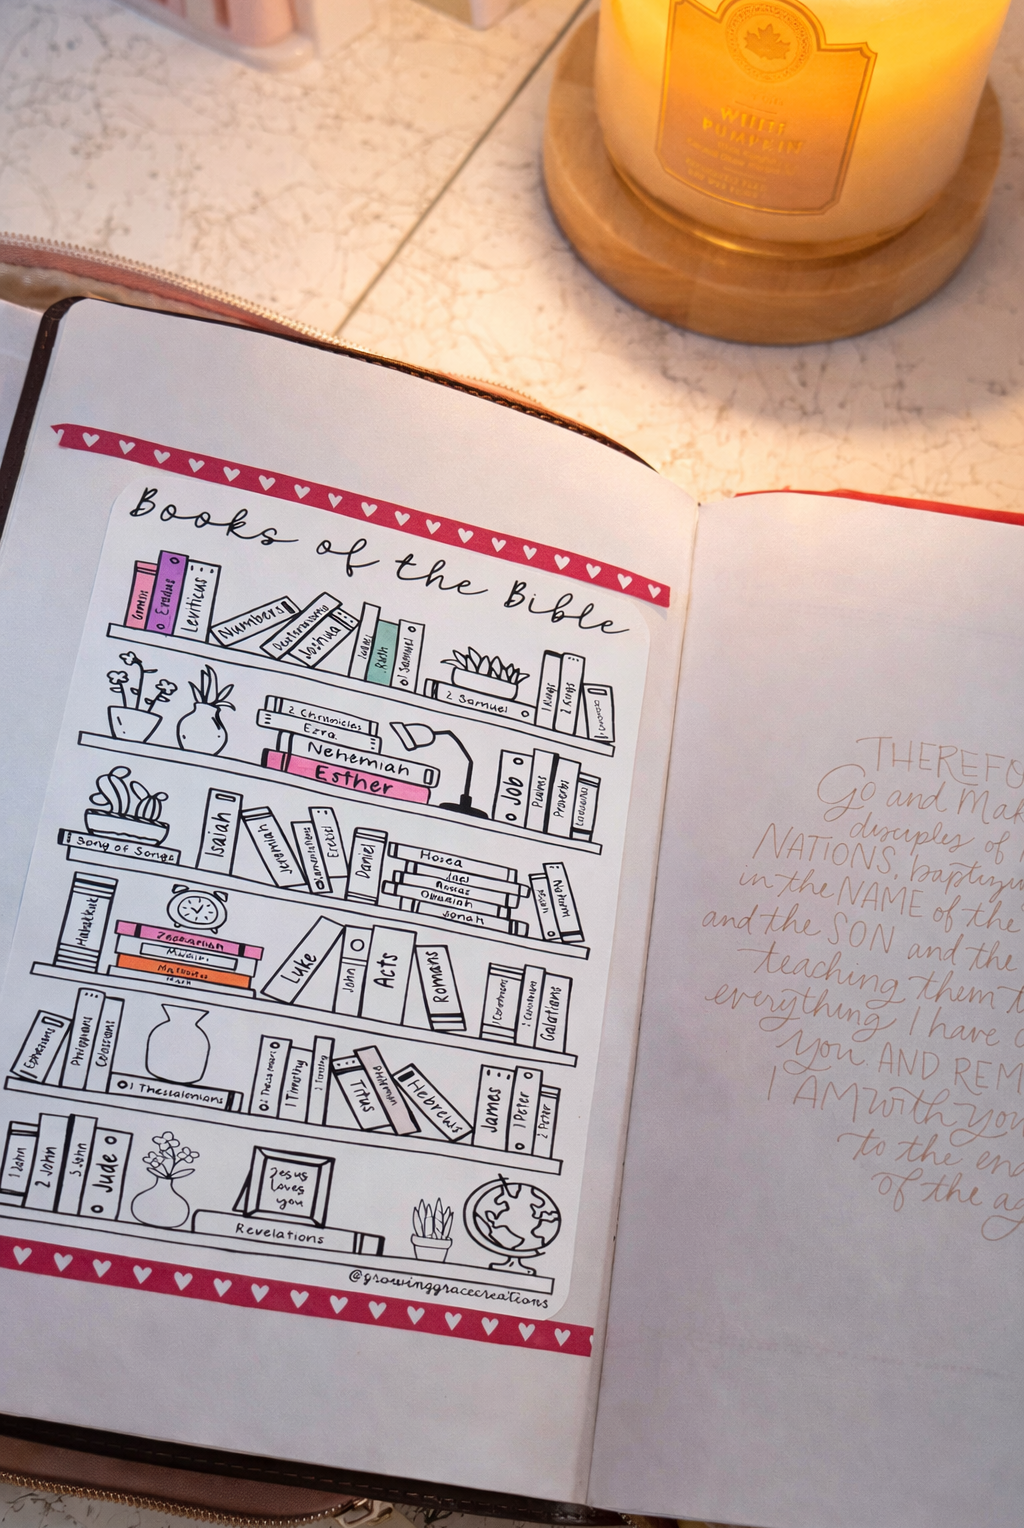 WHITE
PUMPKIN
Books of the Bible
Genesis
Exodus
Leviticus
Numbers
Deuteronomy
Joshua
Ruth
1 Samuel
2 Samuel
1 Kings
2 Kings
2 Chronicles
Ezra
Nehemiah
Esther
Job
Psalms
Proverbs
Song of Songs
Isaiah
Jeremiah
Lamentations
Ezekiel
Daniel
Hosea
Joel
Obadiah
Jonah
Nahum
Habakkuk
Zephaniah
Luke
John
Acts
Romans
Galatians
Ephesians
Philippians
Colossians
1 Thessalonians
1 Timothy
2 Timothy
Titus
Philemon
Hebrews
James
1 Peter
2 Peter
1 John
2 John
3 John
Jude
Jesus
Loves
you
Revelations
@growinggracecreations
THEREFO
Go and Mak
disciples of
NATIONS, baptizin
in the NAME of the
and the SON and the
teaching them t
everything I have
you AND REM
I AM with you
to the en
of the ag